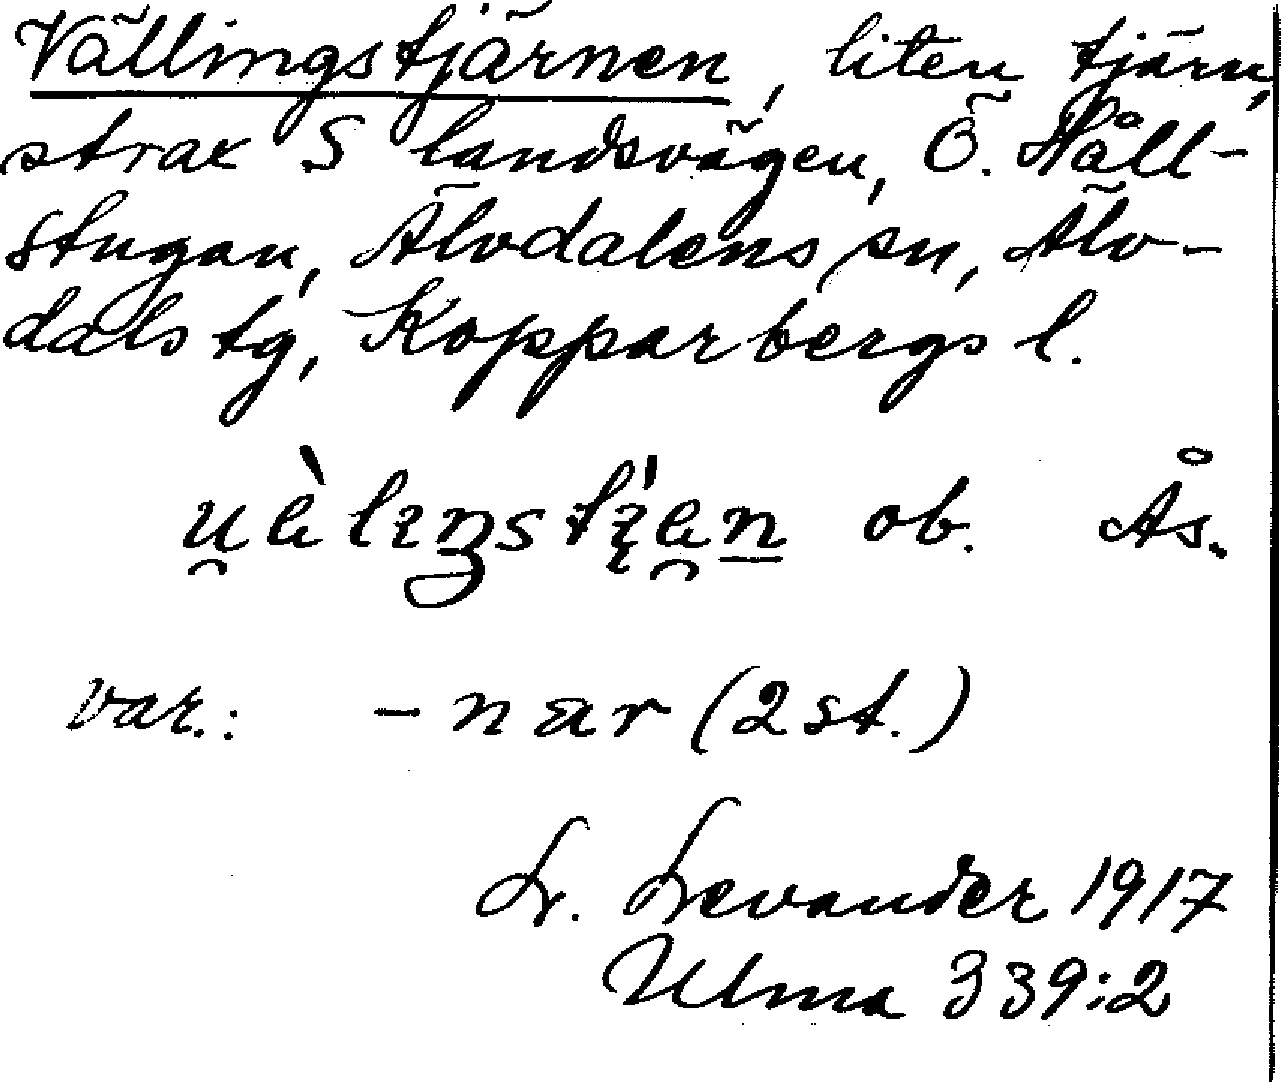 Vällingstjärnen, liten tjärn,
strax S landsvägen, Ö. Håll-
stugan, Älvdalens sn, Älv-
dals tg, Kopparbergs l.
ob. Ås.
var.: -nær (2 st.)
L. Levander 1917
Ulma 339:2